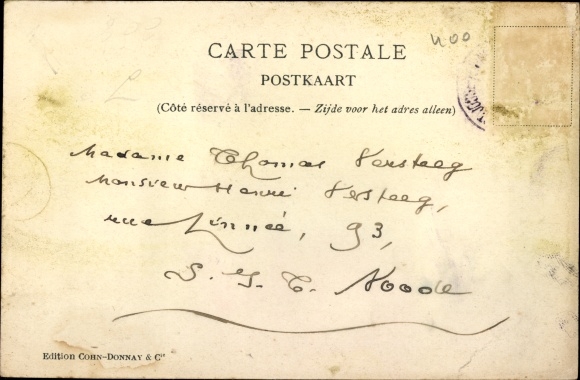 400
CARTE POSTALE
POSTKAART
(Côté réservé à l'adresse. — Zijde voor het adres alleen)
Madame Thomas Versteeg
Monsieur Henri Vesteeg,
rue Linnée, 93,
S. J. T. Noode
Edition COHN-DONNAY & Cie